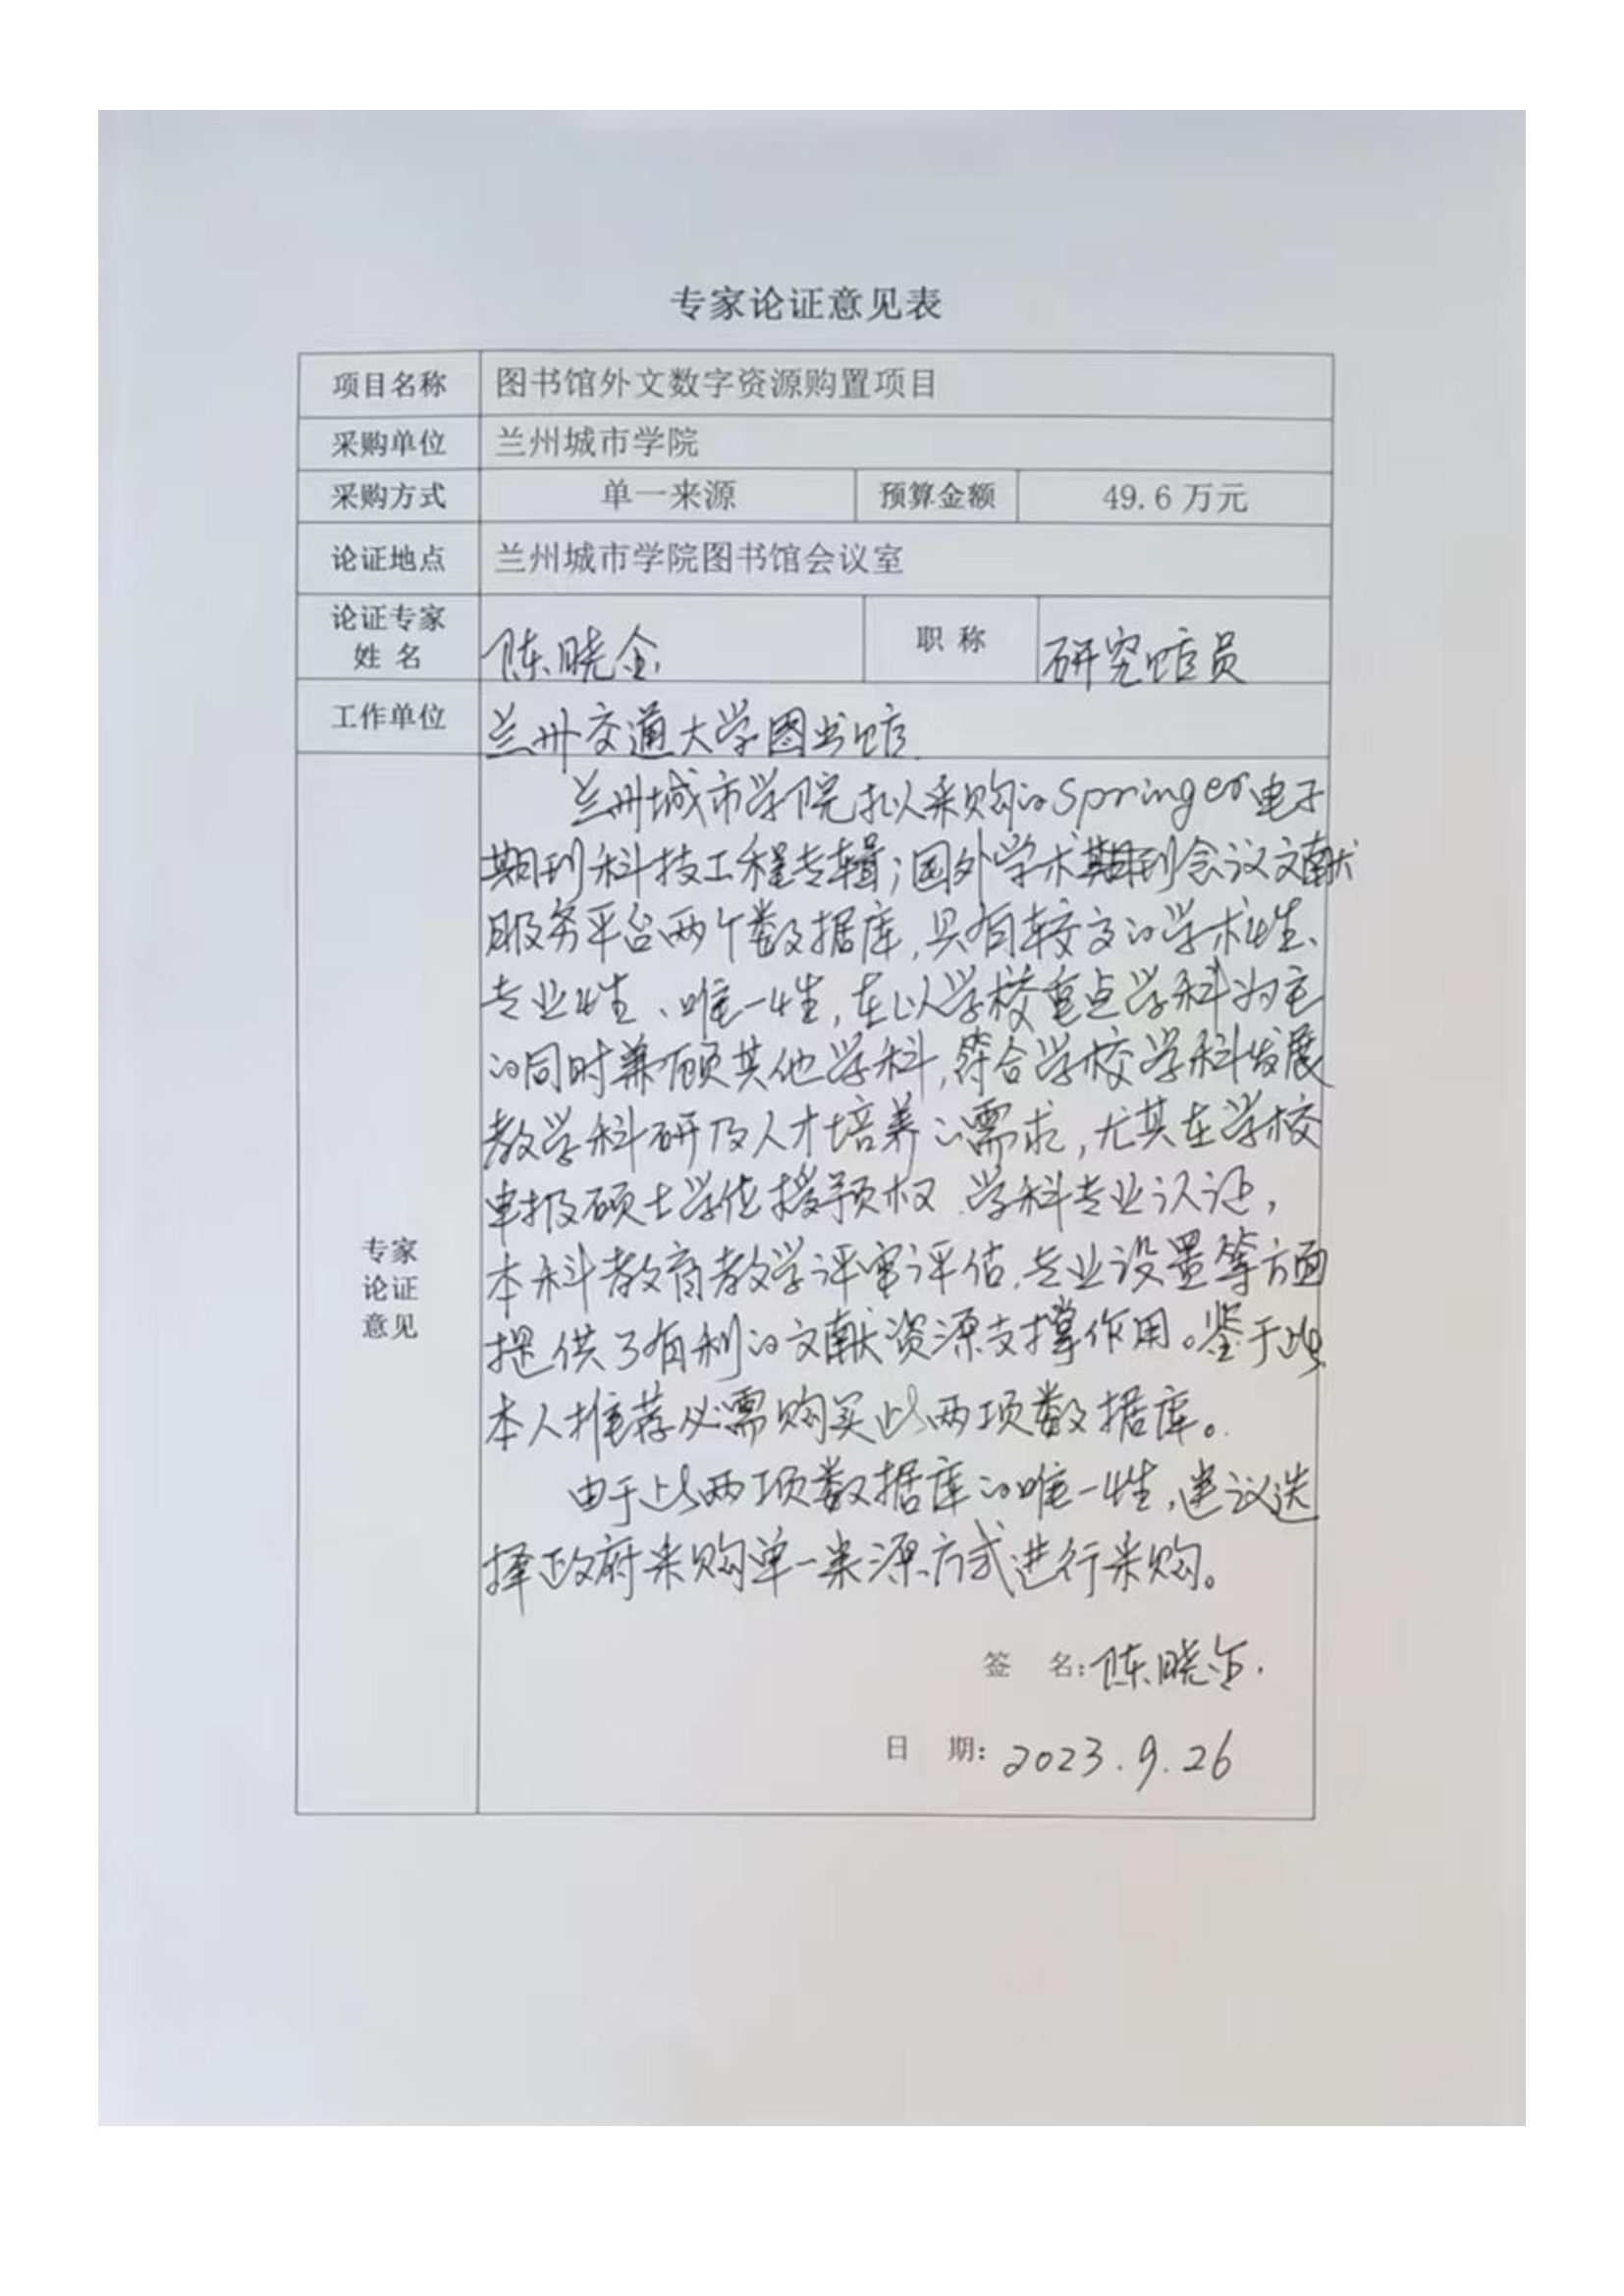 专家论证意见表
项目名称 图书馆外文数字资源购置项目
采购单位 兰州城市学院
采购方式 单一来源 预算金额 49.6万元
论证地点 兰州城市学院图书馆会议室
论证专家
姓 名 陈晓金 职 称 研究馆员
工作单位 兰州交通大学图书馆
兰州城市学院拟采购的Springer电子
期刊科技工程专辑；国外学术期刊会议文献
服务平台两个数据库，具有较高的学术性、
专业性、唯一性，在以学校重点学科为主
的同时兼顾其他学科，符合学校学科发展
教学科研及人才培养的需求，尤其在学校
申报硕士学位授予权、学科专业认证，
本科教育教学评审评估、专业设置等方面
提供了有利的文献资源支撑作用。鉴于此
本人推荐必需购买此两项数据库。
由于此两项数据库的唯一性，建议选
择政府采购单一来源方式进行采购。
专家
论证
意见
签 名：陈晓金.
日 期：2023.9.26